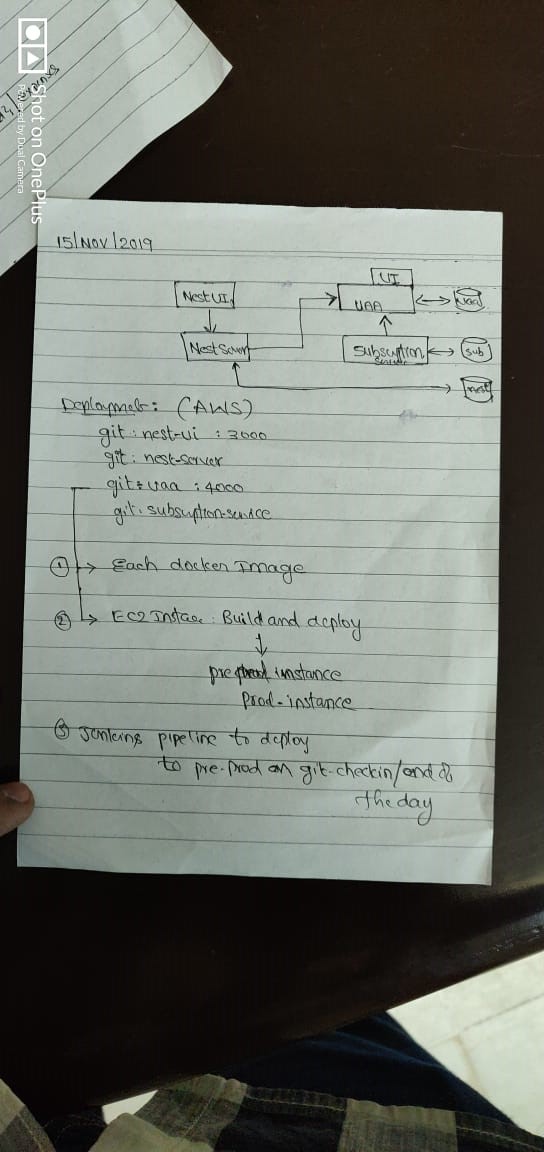 Shot on OnePlus
Powered by Dual Camera
15/NOV/2019
UI
Nest UI
UAA
uaa
Nest Server
Subscription
Server
Sub
nest
Deployment: (AWS)
git: nest-ui : 3000
git: nest-server
git: uaa : 4000
git: subscription-service
① → Each docker Image
② → EC2 Instance: Build and deploy
pre prod instance
Prod-instance
③ Jenkins pipeline to deploy
to pre-prod on git-checkin/end of
the day